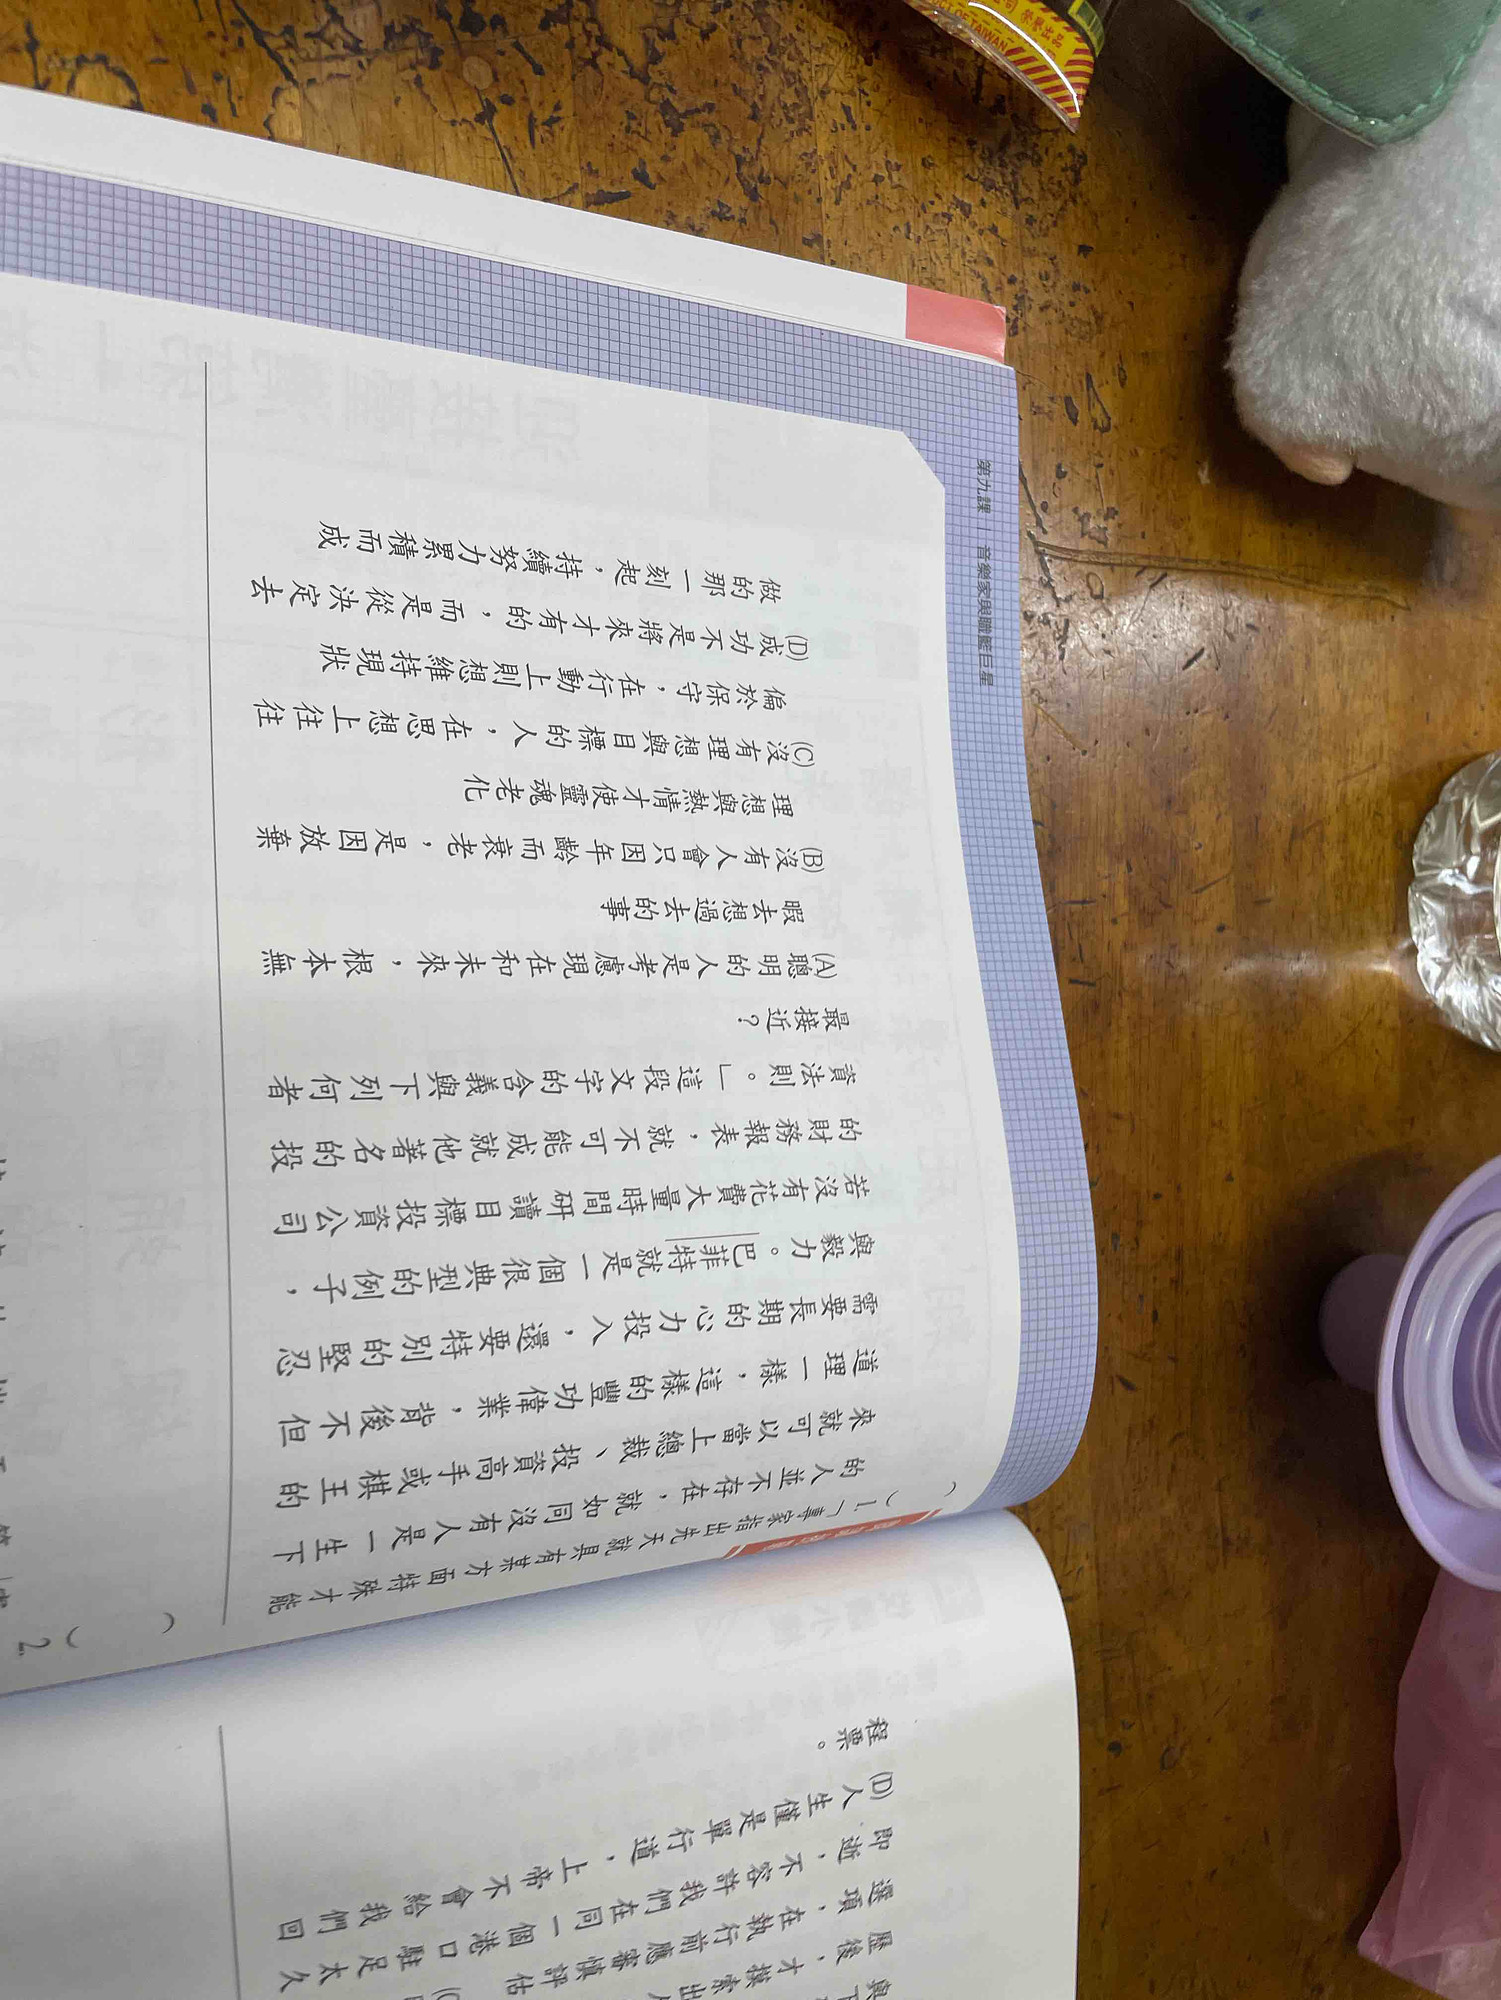 第九課│音樂家與職籃巨星
)1.「專家指出先天就具有某方面特殊才能
的人並不存在,就如同沒有人是一生下
來就可以當上總裁、投資高手或棋王的
道理一樣,這樣的豐功偉業,背後不但
需要長期的心力投入,還要特別的堅忍
與毅力。巴菲特就是一個很典型的例子,
若沒有花費大量時間研讀目標投資公司
的財務報表,就不可能成就他著名的投
資法則。」這段文字的含義與下列何者
最接近?
(A)聰明的人是考慮現在和未來,根本無
暇去想過去的事
(B)沒有人會只因年齡而衰老,是因放棄
理想與熱情才使靈魂老化
(C)沒有理想與目標的人,在思想上往往
偏於保守,在行動上則想維持現狀
(D)成功不是將來才有的,而是從決定去
做的那一刻起,持續努力累積而成
)2.
歷後,才摸索出
選項,在執行前應審慎評估
即逝,不容許我們在同一個港口駐足太久
(D)人生僅是單行道,上帝不會給我們回
程票。
司 榮譽出品
CE OF TAIWAN